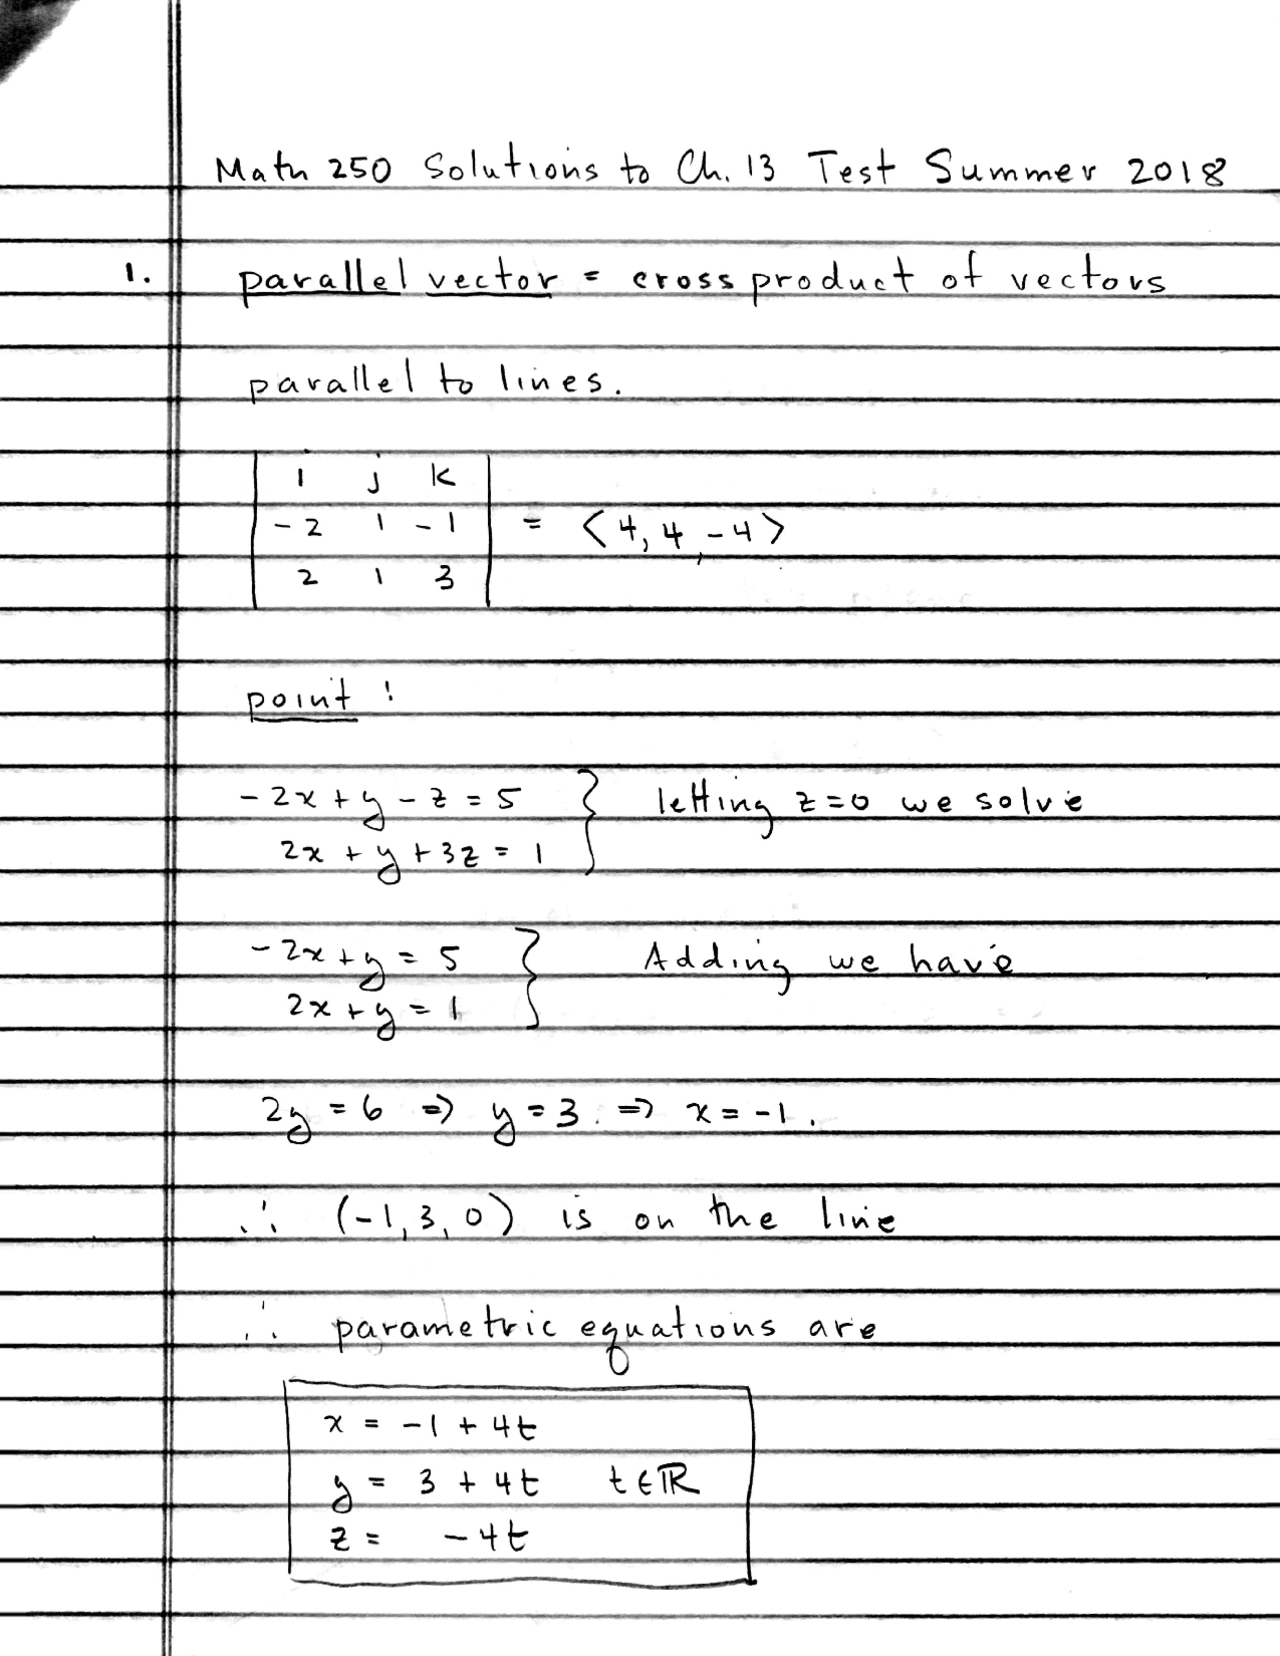 Math 250 Solutions to Ch. 13 Test Summer 2018
1. parallel vector = cross product of vectors
parallel to lines.
| i j k |
| -2 1 -1 | = ⟨4, 4, -4⟩
| 2 1 3 |
point :
-2x + y - z = 5 } letting z=0 we solve
2x + y + 3z = 1
-2x + y = 5 } Adding we have
2x + y = 1
2y = 6 ⇒ y = 3. ⇒ x = -1.
∴ (-1, 3, 0) is on the line
∴ parametric equations are
x = -1 + 4t
y = 3 + 4t t ∈ ℝ
z = -4t